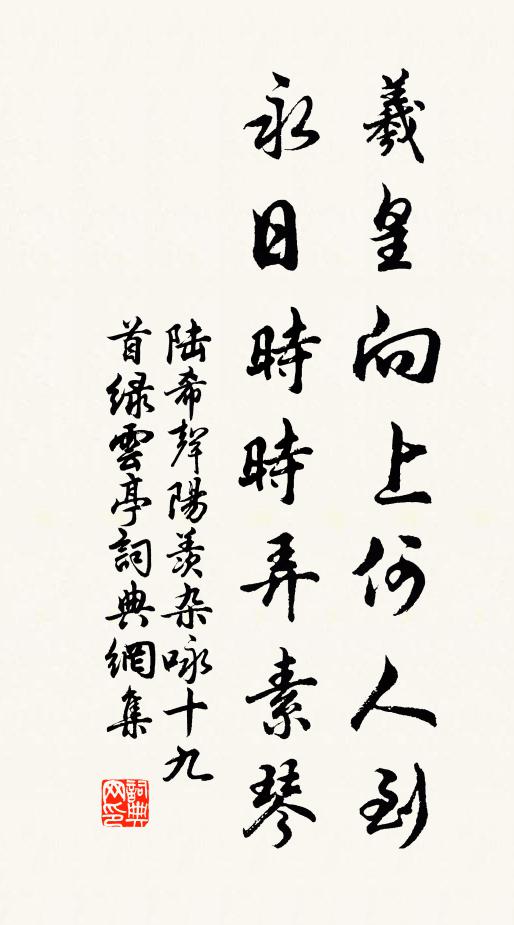 羲皇向上何人到
永日時時弄素琴
陸希聲陽羨杂咏十九
首绿雲亭詞典網集
詞典
网印